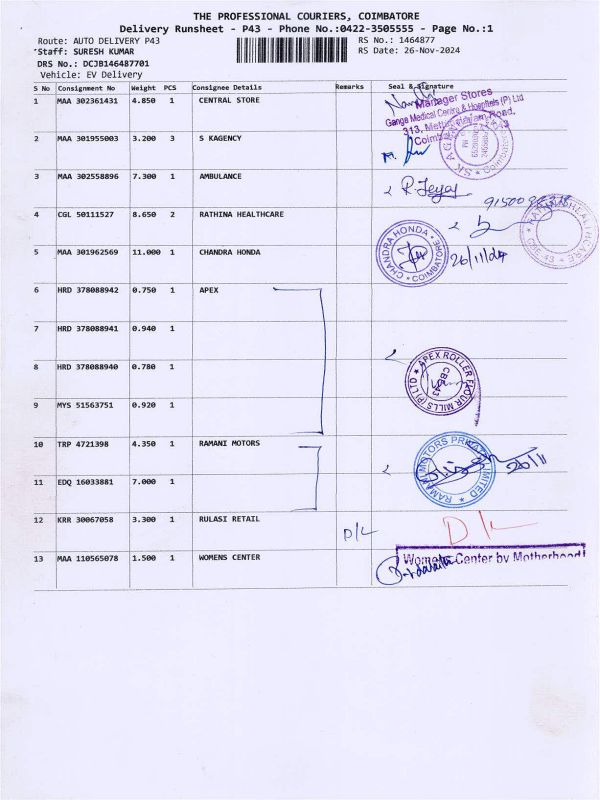 THE PROFESSIONAL COURIERS, COIMBATORE
Delivery Runsheet - P43 - Phone No.:0422-3505555 - Page No.:1
Route: AUTO DELIVERY P43
RS No.: 1464877
Staff: SURESH KUMAR
RS Date: 26-Nov-2024
DRS No.: DCJB146487701
Vehicle: EV Delivery
S No Consignment No Weight PCS Consignee Details Remarks Seal & Signature
1 MAA 302361431 4.850 1 CENTRAL STORE
Manager Stores
Ganga Medical Centre & Hospitals (P) Ltd
313, Mettupalayam Road,
2 MAA 301955003 3.200 3 S KAGENCY
3 MAA 302558896 7.300 1 AMBULANCE
4 CGL 50111527 8.650 2 RATHINA HEALTHCARE
5 MAA 301962569 11.000 1 CHANDRA HONDA
CHANDRA HONDA COIMBATORE
26/11/24
6 HRD 378088942 0.750 1 APEX
7 HRD 378088941 0.940 1
8 HRD 378088940 0.780 1
APEX ROLLER FLOUR MILLS (P) LTD
CBE-43
9 MYS 51563751 0.920 1
10 TRP 4721398 4.350 1 RAMANI MOTORS
RAMANI MOTORS PRIVATE LIMITED
26/11
11 EDQ 16033881 7.000 1
12 KRR 30067058 3.300 1 RULASI RETAIL D/L D/L
13 MAA 110565078 1.500 1 WOMENS CENTER
Womens Center by Motherhood